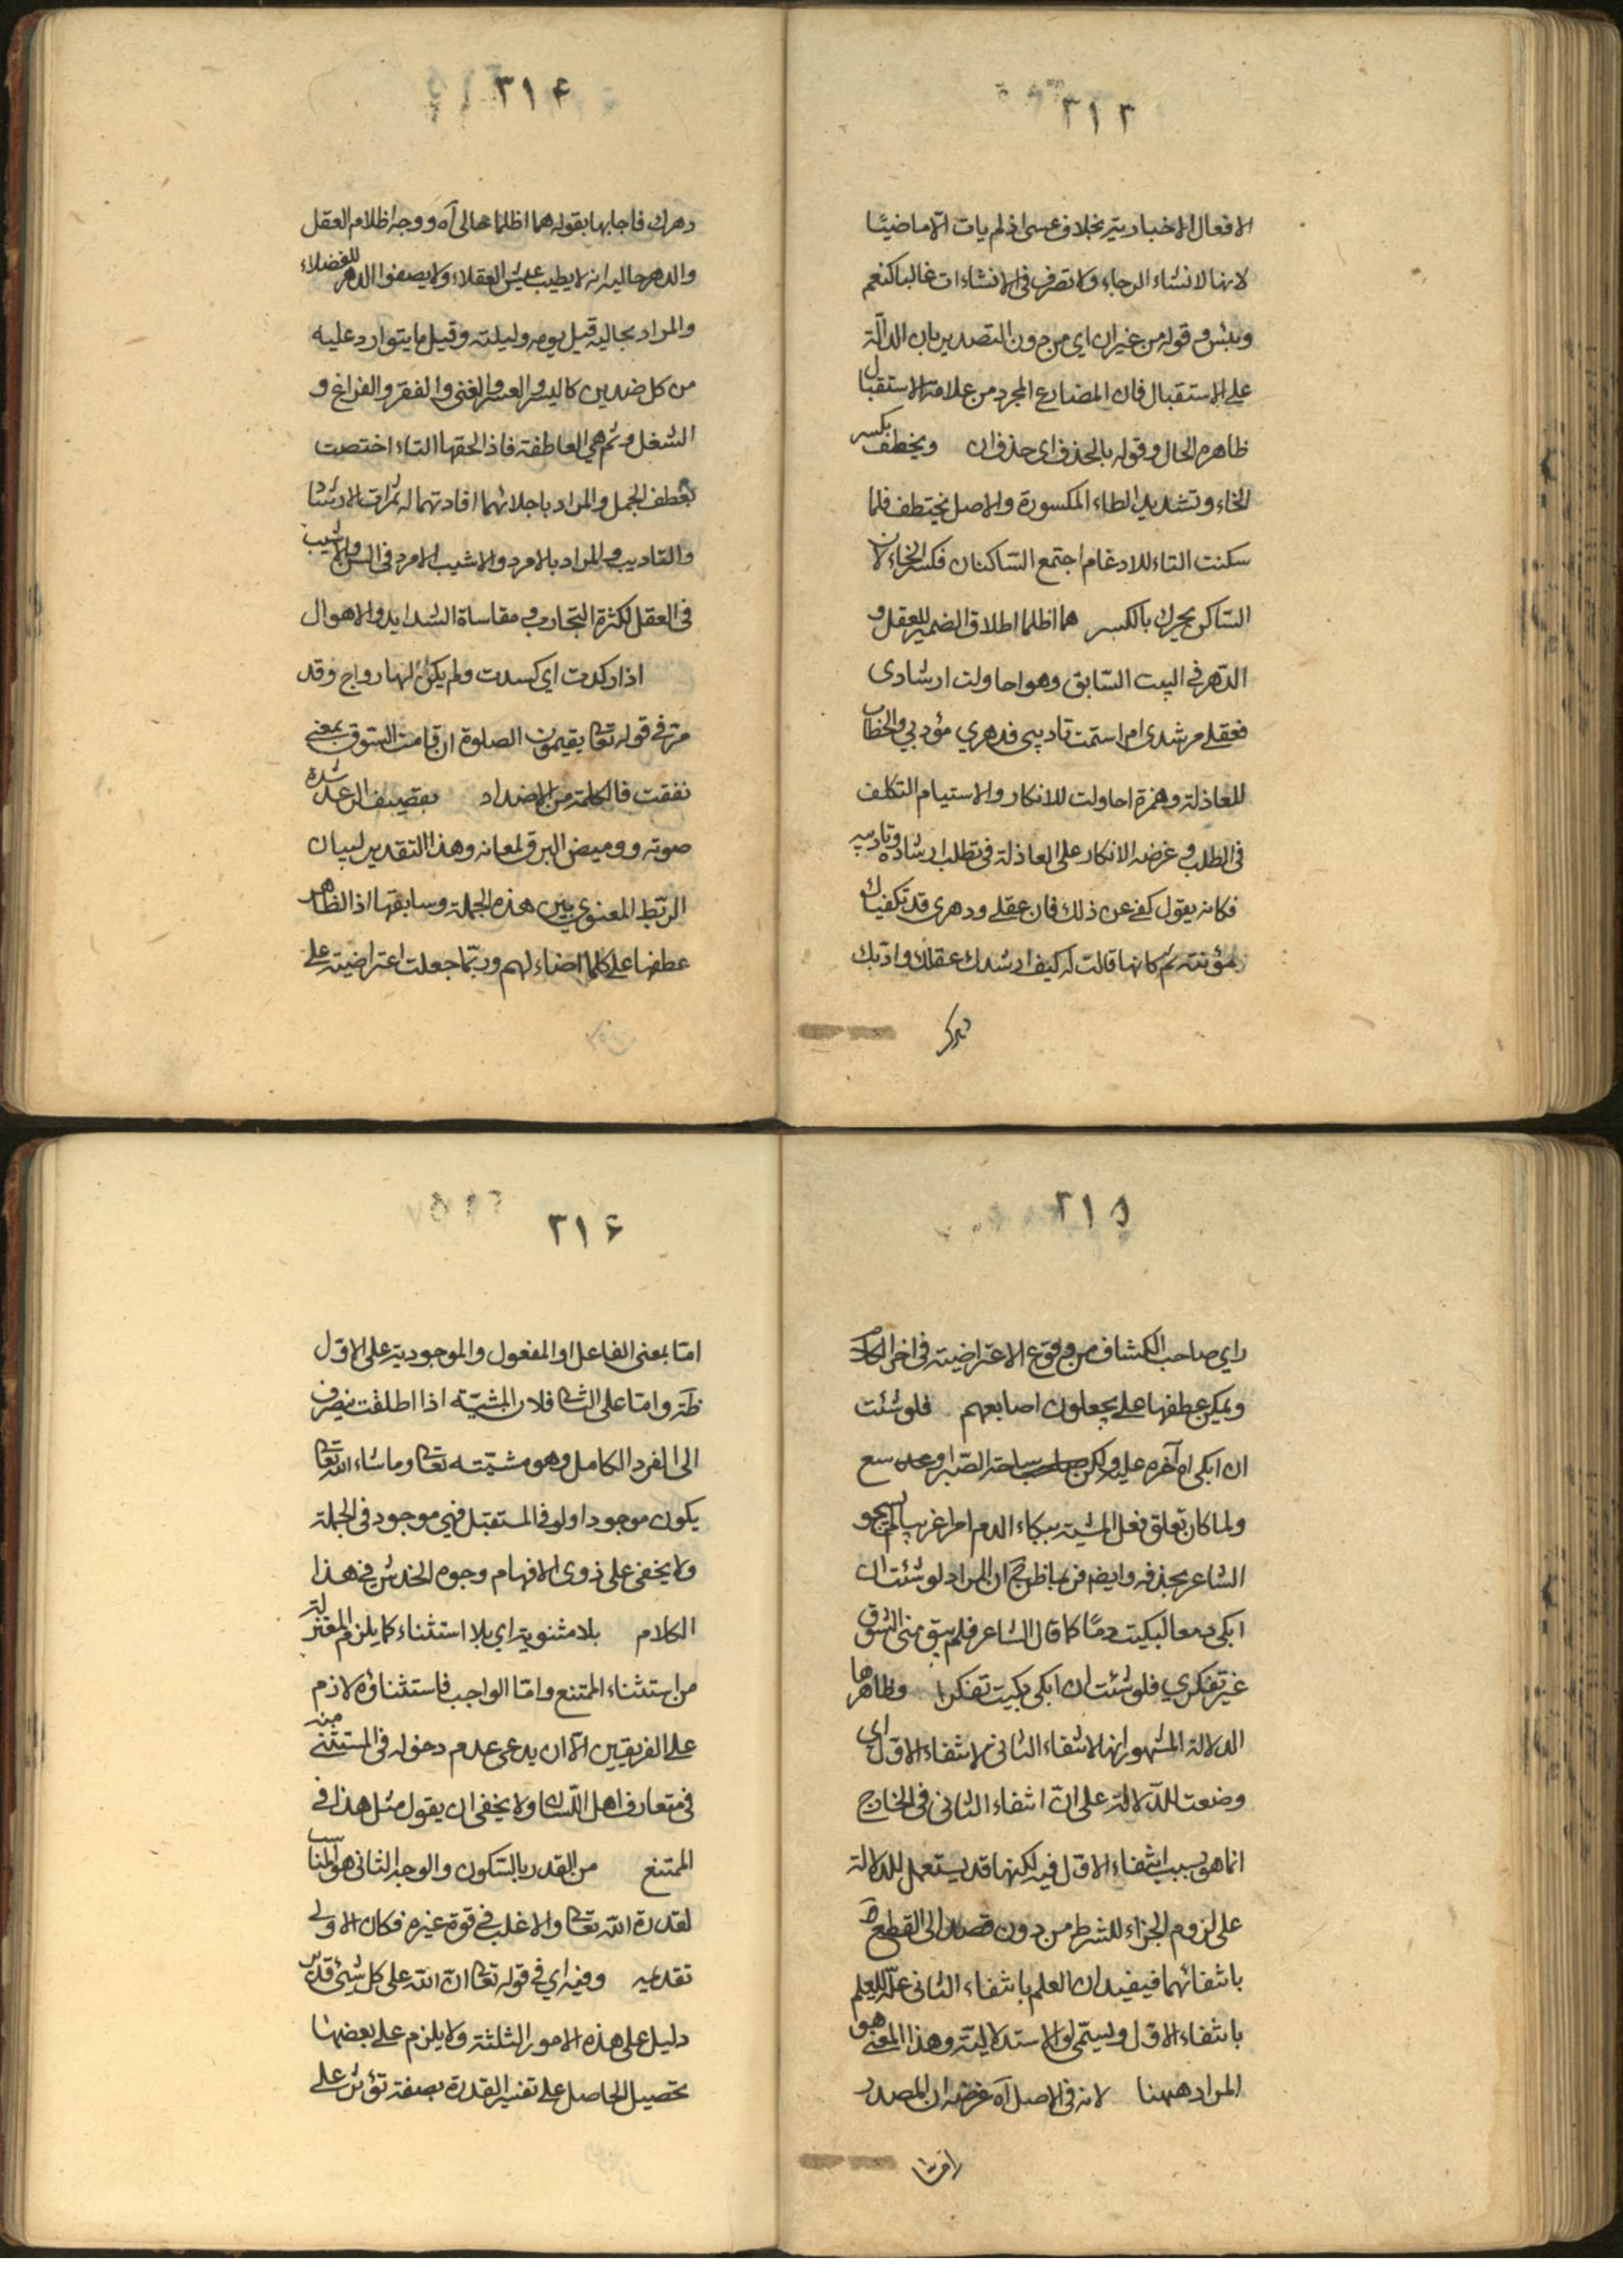 ٣١٣
الافعال الاخبارية بخلاف عسى اذ لم يات الا ماضيًا
لانها لانشاء الرجاء ولا تصرف فى الانشاءات غالبا كنعم
وبئس و قوله من غير ان اى من دون التصدير بان الدالّة
على الاستقبال فان المضارع المجرد من علامة الاستقبال
ظاهره الحال و قوله بالحذف اى حذف ان ويخطف بكسر
الخاء و تشديد الطاء المكسورة والاصل يختطف فلما
سكنت التاء للادغام اجتمع الساكنان فكسر الخاء لان
الساكن يحرك بالكسر هما اظلما اطلاق الضمير للعقل و
الدهر فى البيت السّابق وهو احاولت ارشادى
فعقلى مرشدى ام استمت تاديبى فدهري مؤدبي والخطاب
للعاذلة وهمزة احاولت للانكار والاستيام التكلف
فى الطلب و غرضه الانكار على العاذلة فى تطلب ارشاده وتاديبه
فكانه يقول كفى عن ذلك فان عقلى ودهرى قد تكفيك
مؤنته ثم كانها قالت له كيف ارشدك عقلك وادّبك
دهرك
٣١۴
دهرك فاجابها بقوله هما اظلما حالى آه ووجه اظلام العقل
والدهر حاليه انه لا يطيب عيش العقلاء ولا يصفوا الدهر للفضلاء
والمراد بحاليه قيل يومه وليلته وقيل ما يتوارد عليه
من كل ضدين كاليسر والعسر والغنى والفقر والفراغ و
الشغل و ثم هى العاطفة فاذا لحقها التاء اختصت
بعطف الجمل والمراد باجلائهما افادتهما له ثمرات الارشاد
والتاديب والمراد بالامرد والاشيب الامرد فى السن والاشيب
فى العقل لكثرة التجارب و مقاساة الشدايد والاهوال
اذا ركدت اى كسدت ولم يكن لها رواج وقد
مرّ فى قوله تعالى يقيمون الصلوة ان قامت السّوق بمعنى
نفقت فالكلمة من الاضداد بقصيف الرعد شدة
صوته ووميض البرق لمعانه وهذا التقدير لبيان
الربط المعنوي بين هذه الجملة وسابقها اذ الظاهر
عطفها على كلما اضاء لهم وربّما جعلت اعتراضية على
٣١۵
راي صاحب الكشاف من وقوع الاعتراضية فى اخر الكلام
ويمكن عطفها على يجعلون اصابعهم فلو شئت
ان ابكى اه آخره عليه ولكن ساحة الصّبر اوسع
ولما كان تعلق فعل المشية ببكاء الدم امرا غريبا لم يجو
الشاعر بحذفه وايضم فربما ظن ح ان المراد لو شئت ان
ابكى دمعا لبكيت دمًا كما قال الشاعر فلم يبق منى الشوق
غير تفكري فلو شئت ان ابكى بكيت تفكرا وظاهرها
الدلالة المشهور انها لانتفاء الثانى لانتفاء الاوّل اى
وضعت للدّلالة على انّ انتفاء الثانى فى الخارج
انما هو بسبب انتفاء الاوّل فيه لكنها قد يستعمل للدلالة
على لزوم الجزاء للشرط من دون قصد الى القطع
بانتفائهما فيفيد ان العلم بانتفاء الثانى علّة للعلم
بانتفاء الاوّل ويسمّى لو الاستدلاليّة وهذا المعنى هو
المراد ههنا لانه فى الاصل آه غرضه ان المصدر
امّا
٣١۶
امّا بمعنى الفاعل او المفعول والموجودية على الاوّل
ظآهر وامّا على الثانى فلان المشيّه اذا اطلقت ينصرف
الى الفرد الكامل وهو مشيّته تعالى وما شاء الله تعالى
يكون موجودا ولو فى المستقبل فهى موجود فى الجملة
ولا يخفى على ذوى الافهام وجوه الخدش فى هذا
الكلام بلا مثنوية اي بلا استثناء كما يلزم المعتزلة
من استثناء الممتنع وامّا الواجب فاستثناؤه لازم
على الفريقين الّا ان يدعى عدم دخوله فى المستثنى منه
فى متعارف اهل اللّسان ولا يخفى ان يقول مثل هذا فى
الممتنع من القدر بالسّكون والوجه الثانى هو المناسب
لقدرة اللّه تعالى والاغلب فى قوة غيره فكان الاولى
تقديمه وفيه اي فى قوله تعالى انّ اللّه على كل شئ قدير
دليل على هذه الامور الثلثة ولا يلزم على بعضها
تحصيل الحاصل على تفسير القدرة بصفة تؤثر على